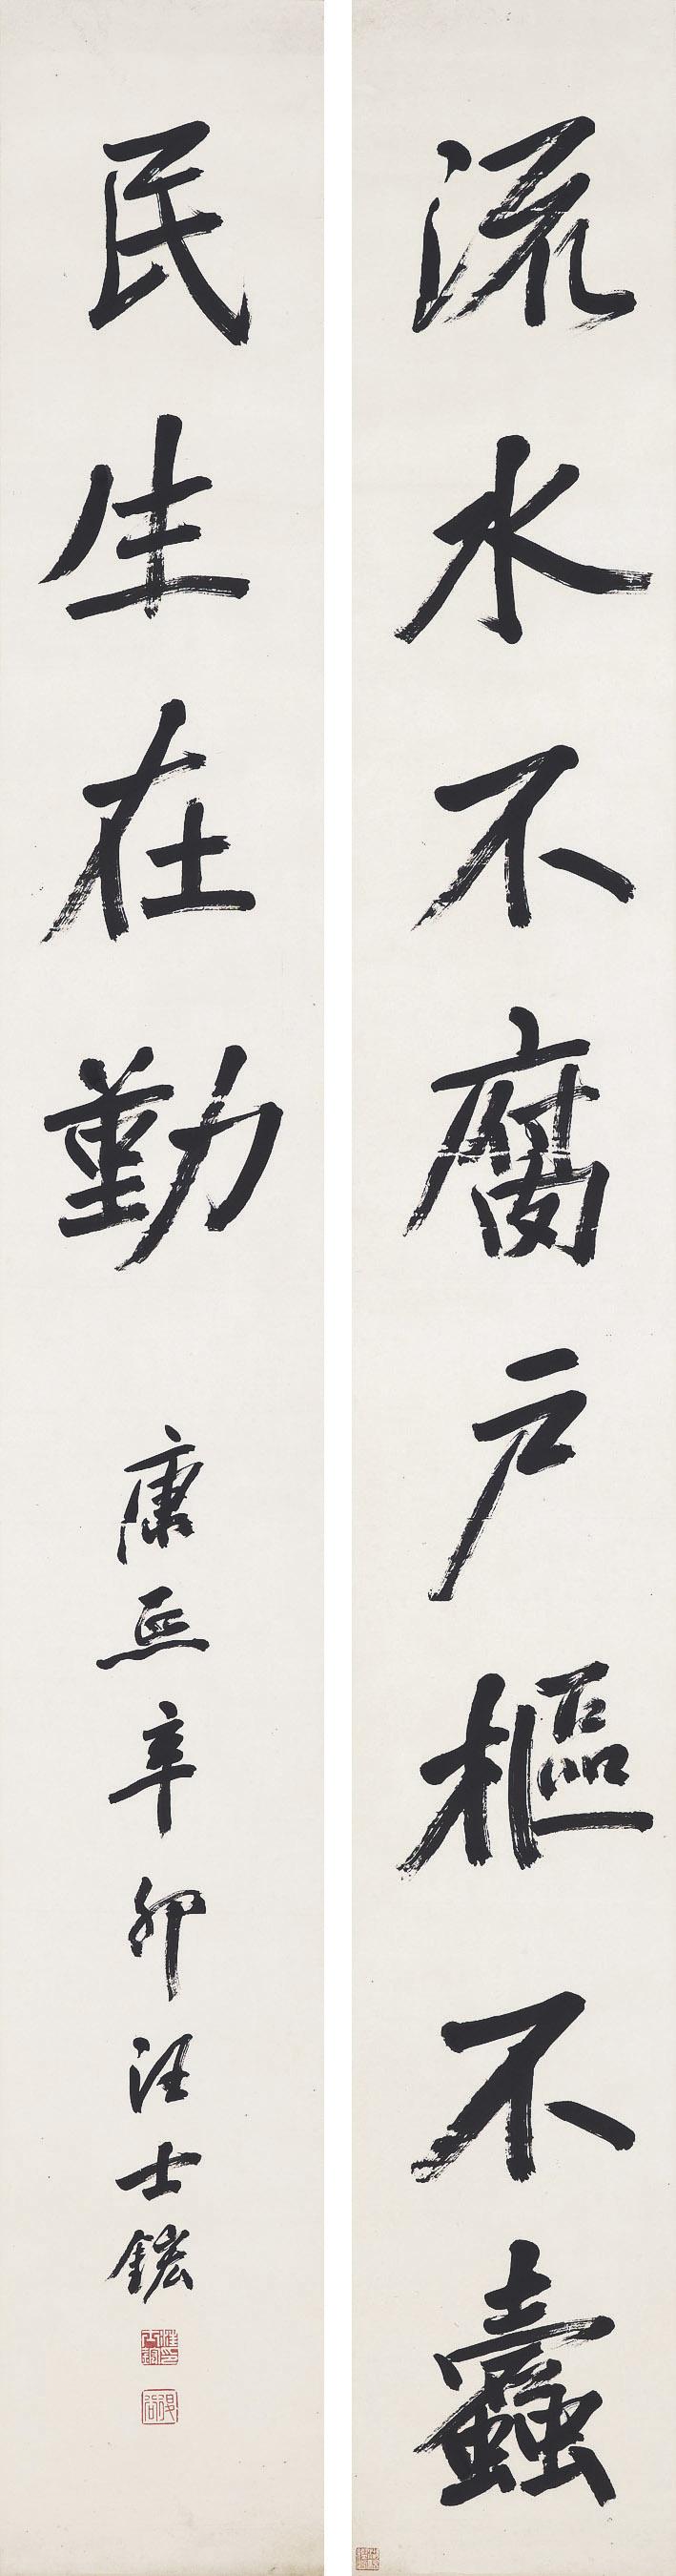 流水不腐户樞不蠹
民生在勤
康熙辛卯汪士鋐